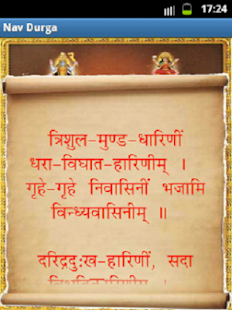 17:24
Nav Durga
त्रिशुल-मुण्ड-धारिणीं
धरा-विघात-हारिणीम् ।
गृहे-गृहे निवासिनीं भजामि
विन्ध्यवासिनीम् ॥
दरिद्रदुःख-हारिणीं, सदा